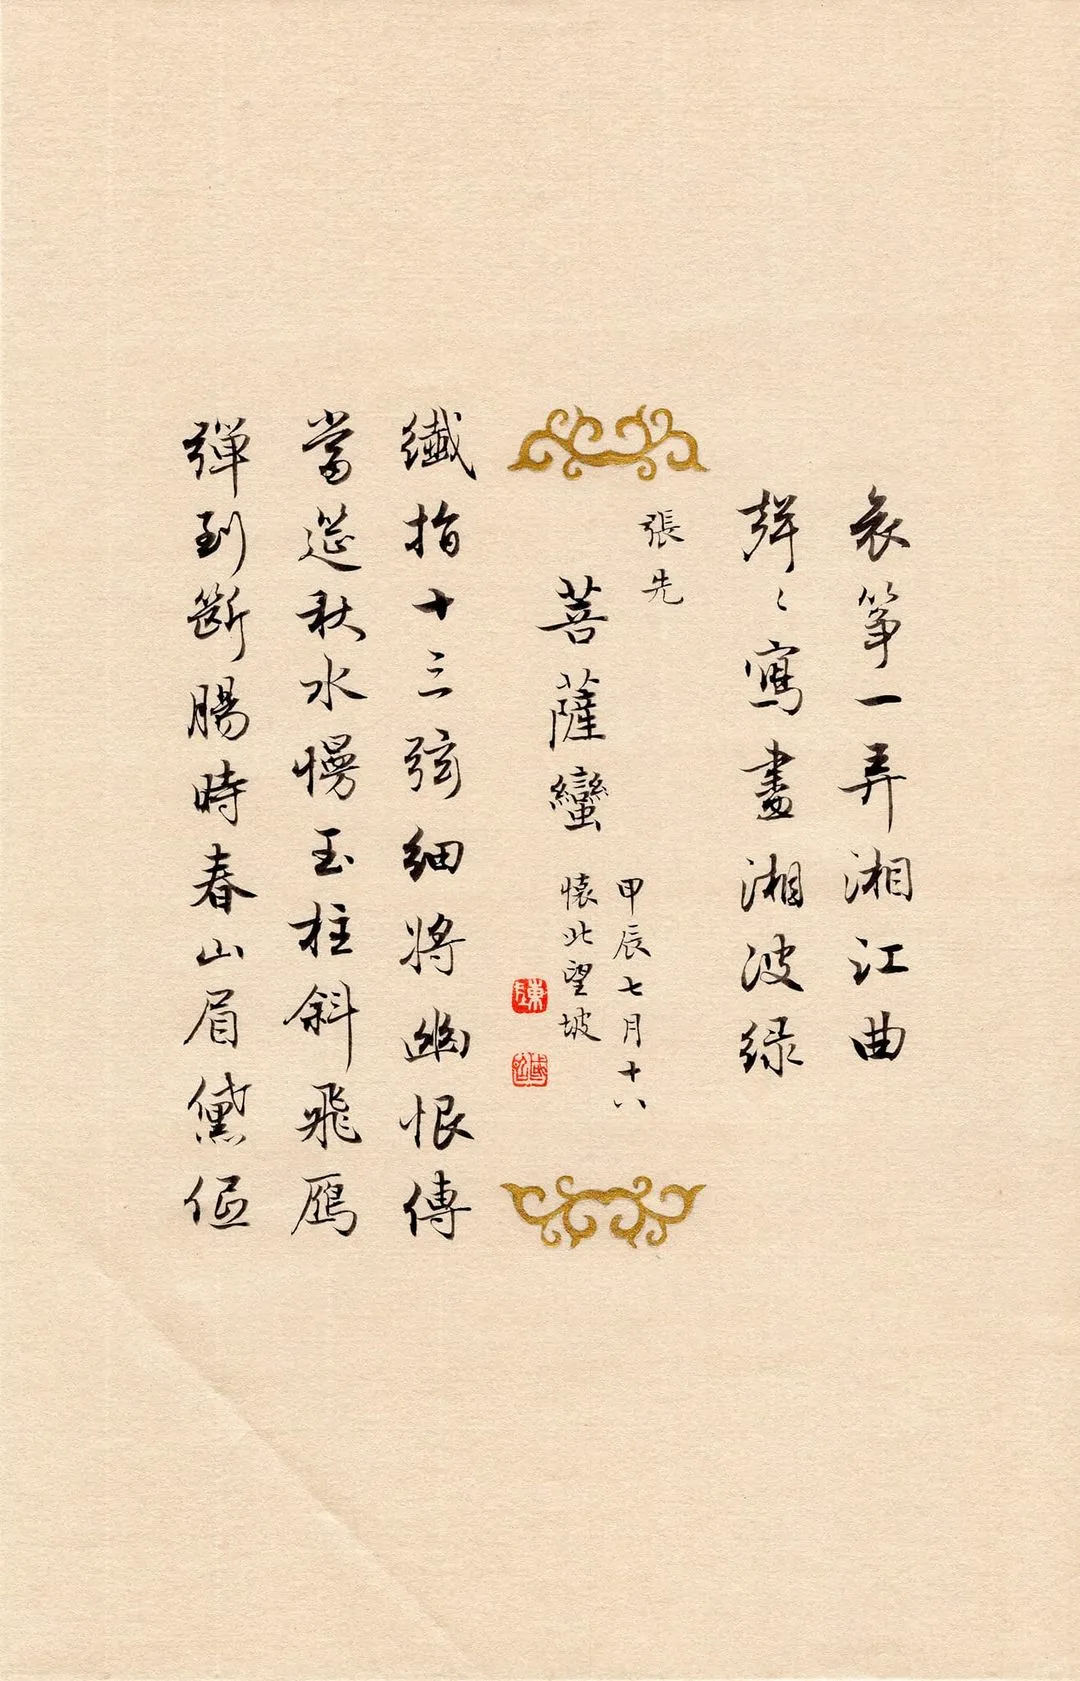 哀箏一弄湘江曲
聲〻寫盡湘波緑
張先
菩薩蠻
甲辰七月十八
懷北望坡
陳
纖指十三弦細將幽恨傳
當筵秋水慢玉柱斜飛鴈
彈到斷腸時春山眉黛低